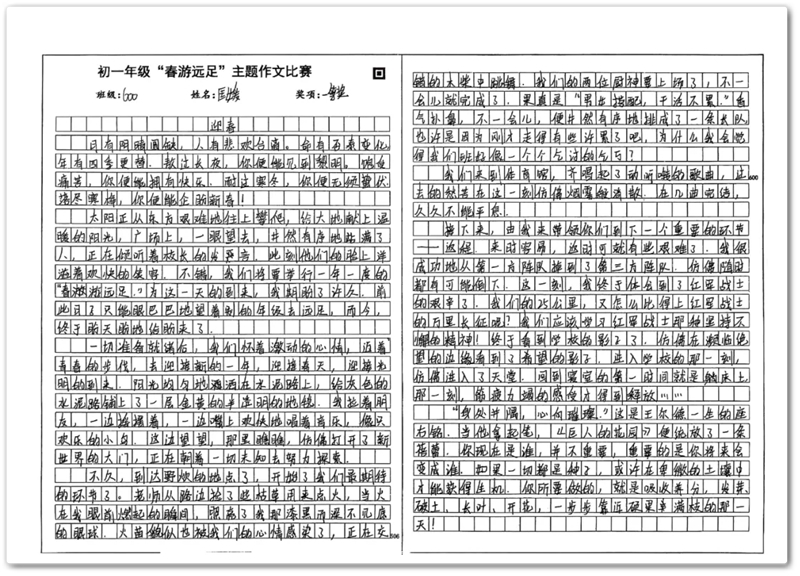 初一年级“春游远足”主题作文比赛
班级：600 姓名： 奖项：
迎春
月有阴晴圆缺，人有悲欢合离。命有百态变化
年有四季更替。熬过长夜，你便能见到黎明。
痛苦，你便能拥有快乐。耐过寒冬，你便无须蛰伏
落尽寒梅，你便能企盼新春！
太阳正从东方艰难地往上攀爬，给大地献上温
暖的阳光，广场上，一眼望去，井然有序地站满了
人，正在倾听着校长的发言。此刻他们的脸上洋
溢着欢快的笑容。不错，我们将要举行一年一度的
“春游远足”为这一天的到来，我期盼了许久。前
些日子只能眼巴巴地望着别的年级去远足，而今，
终于盼天盼地的盼来了。
一切准备就绪后，我们怀着激动的心情，迈着
青春的步伐，去迎接新的一年，迎接春天，迎接光
明的到来。阳光均匀地洒在水泥路上，给灰色的
水泥路铺上了一层金黄的半透明的地毯。我拉着朋
友，一边摇摆着，一边嘴上欢快地唱着音乐，像只
欢乐的小鸟。这边望望，那里瞧瞧，仿佛打开了新
世界的大门，正在朝着一切未知去努力探索。
不久，到达野炊的地点了，开始了我们最期待
的环节了。老师从路边捡了些枯草用来点火，当火
在我眼前燃起的瞬间，照亮了我那漆黑而深不见底
的眼球。火苗似也被我们的心情感染了，正在交
错的木柴中跳跃。我们的两位厨神要上场了，不一
会儿就完成了。果真是“男女搭配，干活不累。”香
气扑鼻，不一会儿，便井然有序地排成了一条长队
也许是因为刚才走得有些许累了吧，为什么我会觉
得我们班好像一个个
我们来到体育馆，齐唱起了动听嘹亮的歌曲，过
去的然若在这一刻仿佛烟雾般消散。在几曲完后，
久久不能平息。
接下来，由我来带领你们到下一个重要的环节
——返程。来时容易，返时可就有些艰难了。我很
成功地从第一方阵队掉到了第三方阵队。仿佛随时
都有可能倒下。这一刻，我终于体会到了红军战士
的艰辛了。我们的25公里，又怎么比得上红军战士
的万里长征呢？我们应该学习红军战士那种坚持不
懈的精神！终于看到学校的影子了。仿佛在濒临绝
望的边缘看到了希望的影子。进入学校的那一刻，
仿佛进入了天堂。回到寝室的第一时间就是躺床上
那一刻，前疲力竭的感觉才得到释放……
“身处井隅，心向璀璨。”这是王尔德一生的座
右铭。当他拿起笔，《巨人的花园》便绽放了一条
花蕾。你现在是谁，并不重要，重要的是你将来会
变成谁。如果一切都是种子，或许在卑微的土壤中
才能获得生机。你所要做的，就是吸收养分，发芽、
破土、长叶、开花，一步步靠近硕果幸满枝的那一
天！